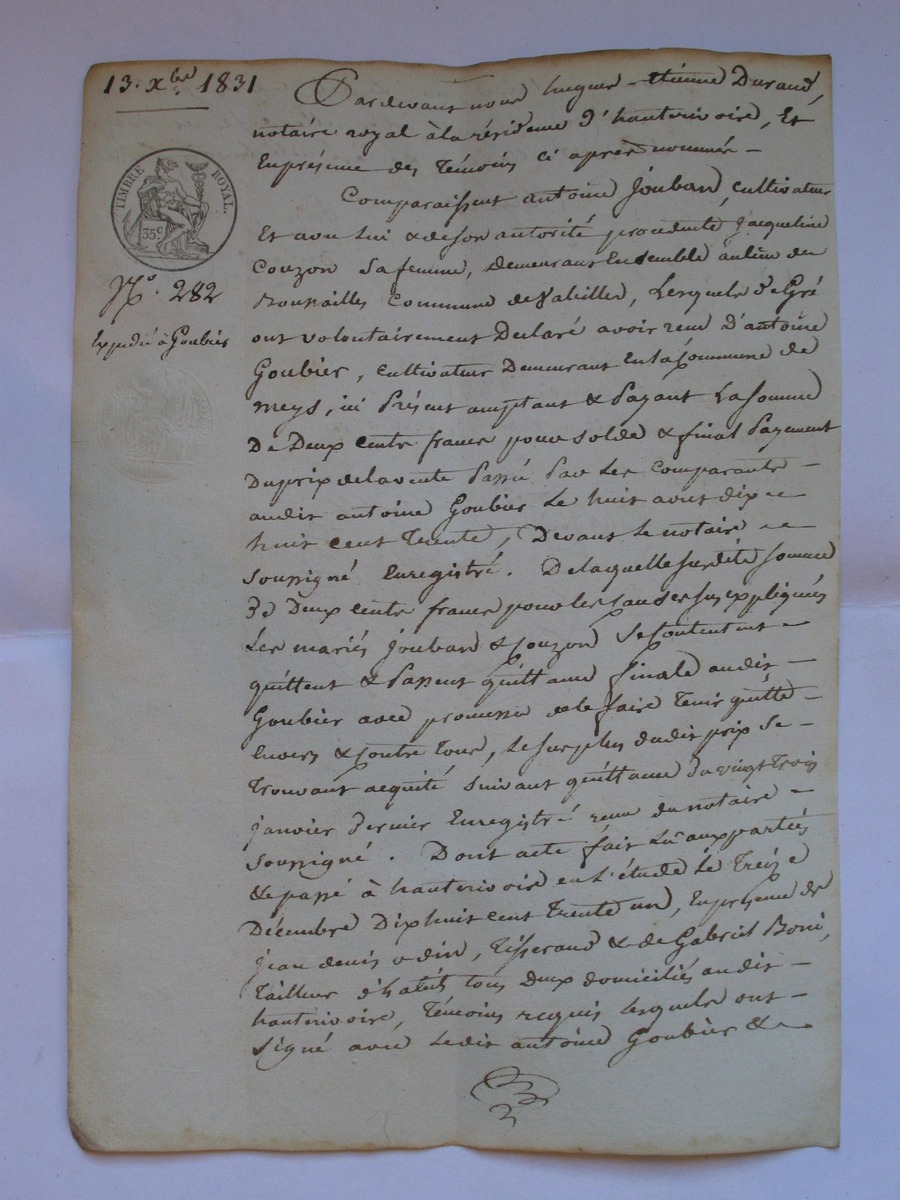 13. Xbre 1831
TIMBRE ROYAL.
35c
No. 282
Expédié à Goubier
Pardevant nous hugues étienne Durand,
notaire royal à la résidence d'hauterivoire, Et
En présence des Témoins ci après nommés -
Comparaissent antoine Jouban, cultivateur
Et avec lui & de son autorité procédente, jacqueline
Couzon sa femme, demeurant Ensemble au lieu de
commune de Valeilles, Lesquels de Gré
ont volontairement Déclaré avoir reçu D'antoine
Goubier, cultivateur Demeurant En la Commune de
meys, ici Présent acceptant & Payant La Somme
De Deux cents francs pour solde & final Payement
Du prix de la vente Passée Par Les Comparants -
audit antoine Goubier Le huit avril dix -
huit cent Trente, Devant Le notaire -
soussigné Enregistré. De laquelle susdite somme
De Deux cents francs pour les causes sus expliquées
Les mariés Jouban & Couzon se contentent -
quittent & Passent quittance finale audit -
Goubier avec promesse de le faire Tenir quitte -
Envers & contre Tous, Le surplus dudit prix se -
Trouvant acquité suivant quittance du vingt Trois
janvier dernier Enregistré reçue du notaire -
soussigné. Dont acte fait Lû aux parties
& passé à hauterivoire en L'étude Le Treize
Décembre Dix huit cent Trente un, En présence de
jean denis odin, Tisserand & de Gabriel Boni,
Tailleur d'habits tous Deux domiciliés audit -
hauterivoire, Témoins requis lesquels ont -
signé avec Ledit antoine Goubier & -